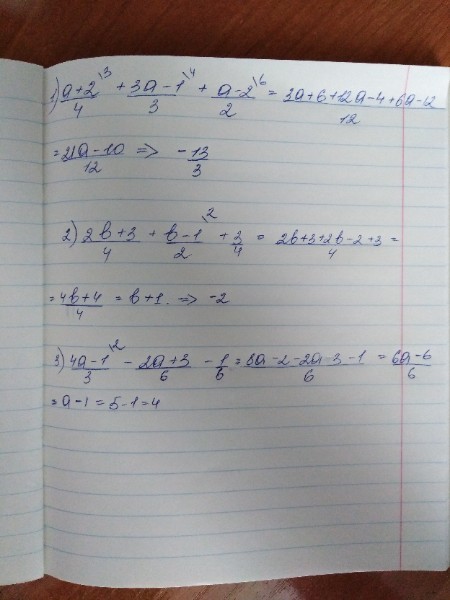 1) (a+2)/4 \3 + (3a-1)/3 \4 + (a-2)/2 \6 = (3a+6+12a-4+6a-12)/12
= (21a-10)/12 => -13/3
2) (2b+3)/4 + (b-1)/2 \2 + 3/4 = (2b+3+2b-2+3)/4 =
= (4b+4)/4 = b+1. => -2
3) (4a-1)/3 \2 - (2a+3)/6 - 1/6 = (8a-2-2a-3-1)/6 = (6a-6)/6
= a-1 = 5-1=4